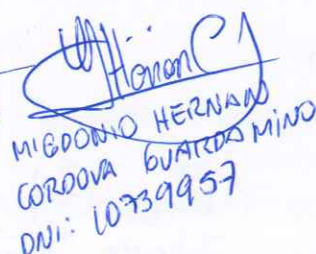 MIGDONIO HERNAN
CORDOVA GUARDAMINO
DNI: 10739957